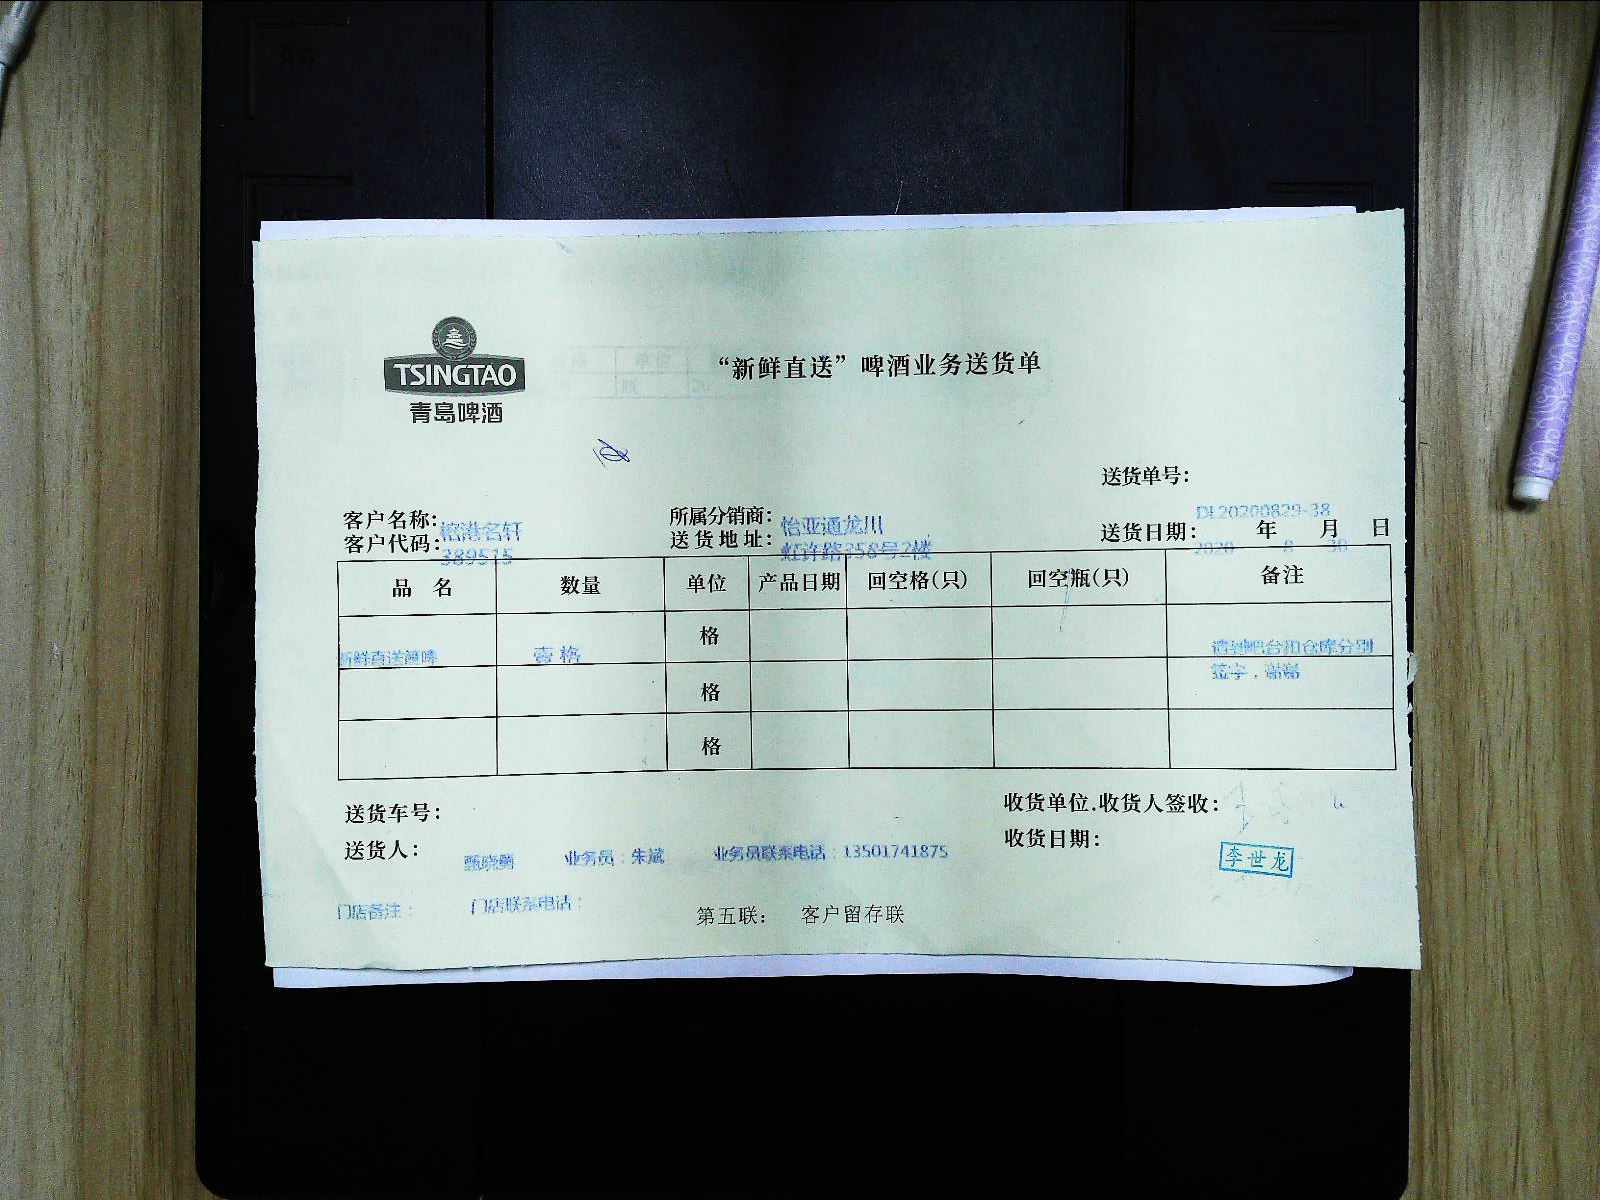 TSINGTAO
青島啤酒
“新鲜直送”啤酒业务送货单
送货单号：
DL20200829-38
客户名称： 榕港名轩 所属分销商： 怡亚通龙川 送货日期： 年 月 日
客户代码： 389515 送货地址： 虹许路358号2楼 2020 8 30
品 名 数量 单位 产品日期 回空格(只) 回空瓶(只) 备注
新鲜直送 壹格 格 请到吧台和仓库分别
签字，谢谢
格
格
送货车号： 收货单位.收货人签收：
送货人： 甄晓 业务员：朱斌 业务员联系电话：13501741875 收货日期：
李世龙
门店备注： 门店联系电话：
第五联： 客户留存联